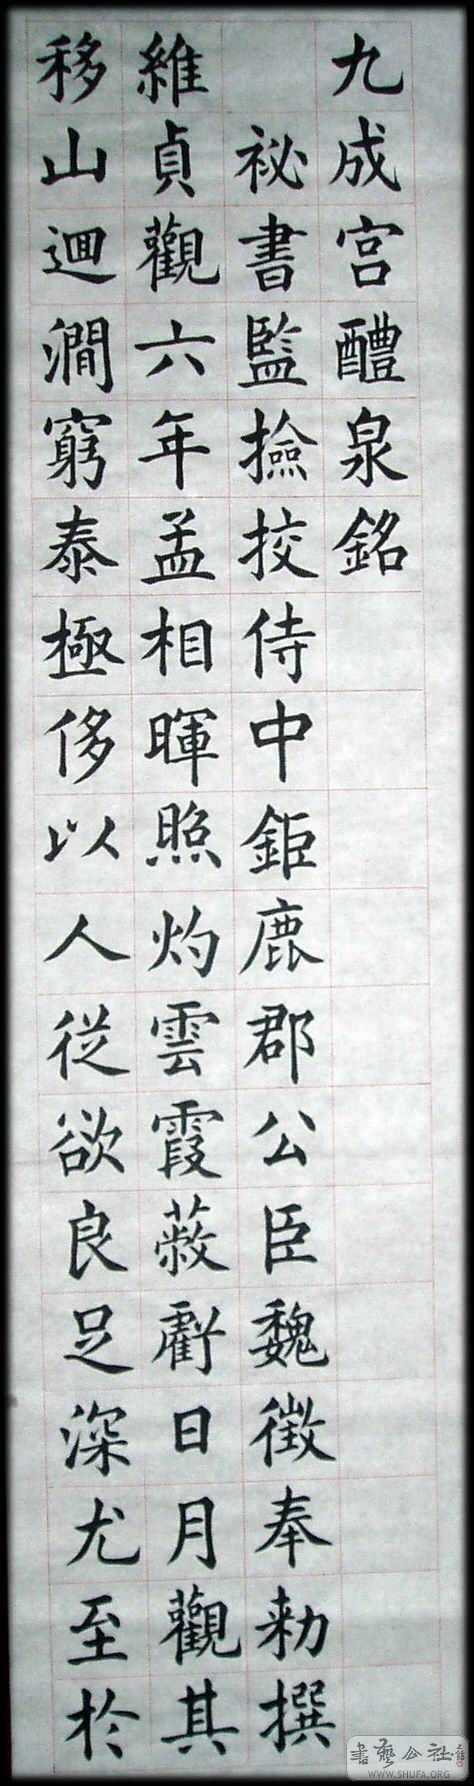 九成宫醴泉銘
祕書監撿挍侍中鉅鹿郡公臣魏徵奉勑撰
維貞觀六年孟相暉照灼雲霞蔽虧日月觀其
移山迴澗窮泰極侈以人從欲良足深尤至於
書藝公社
WWW.SHUFA.ORG